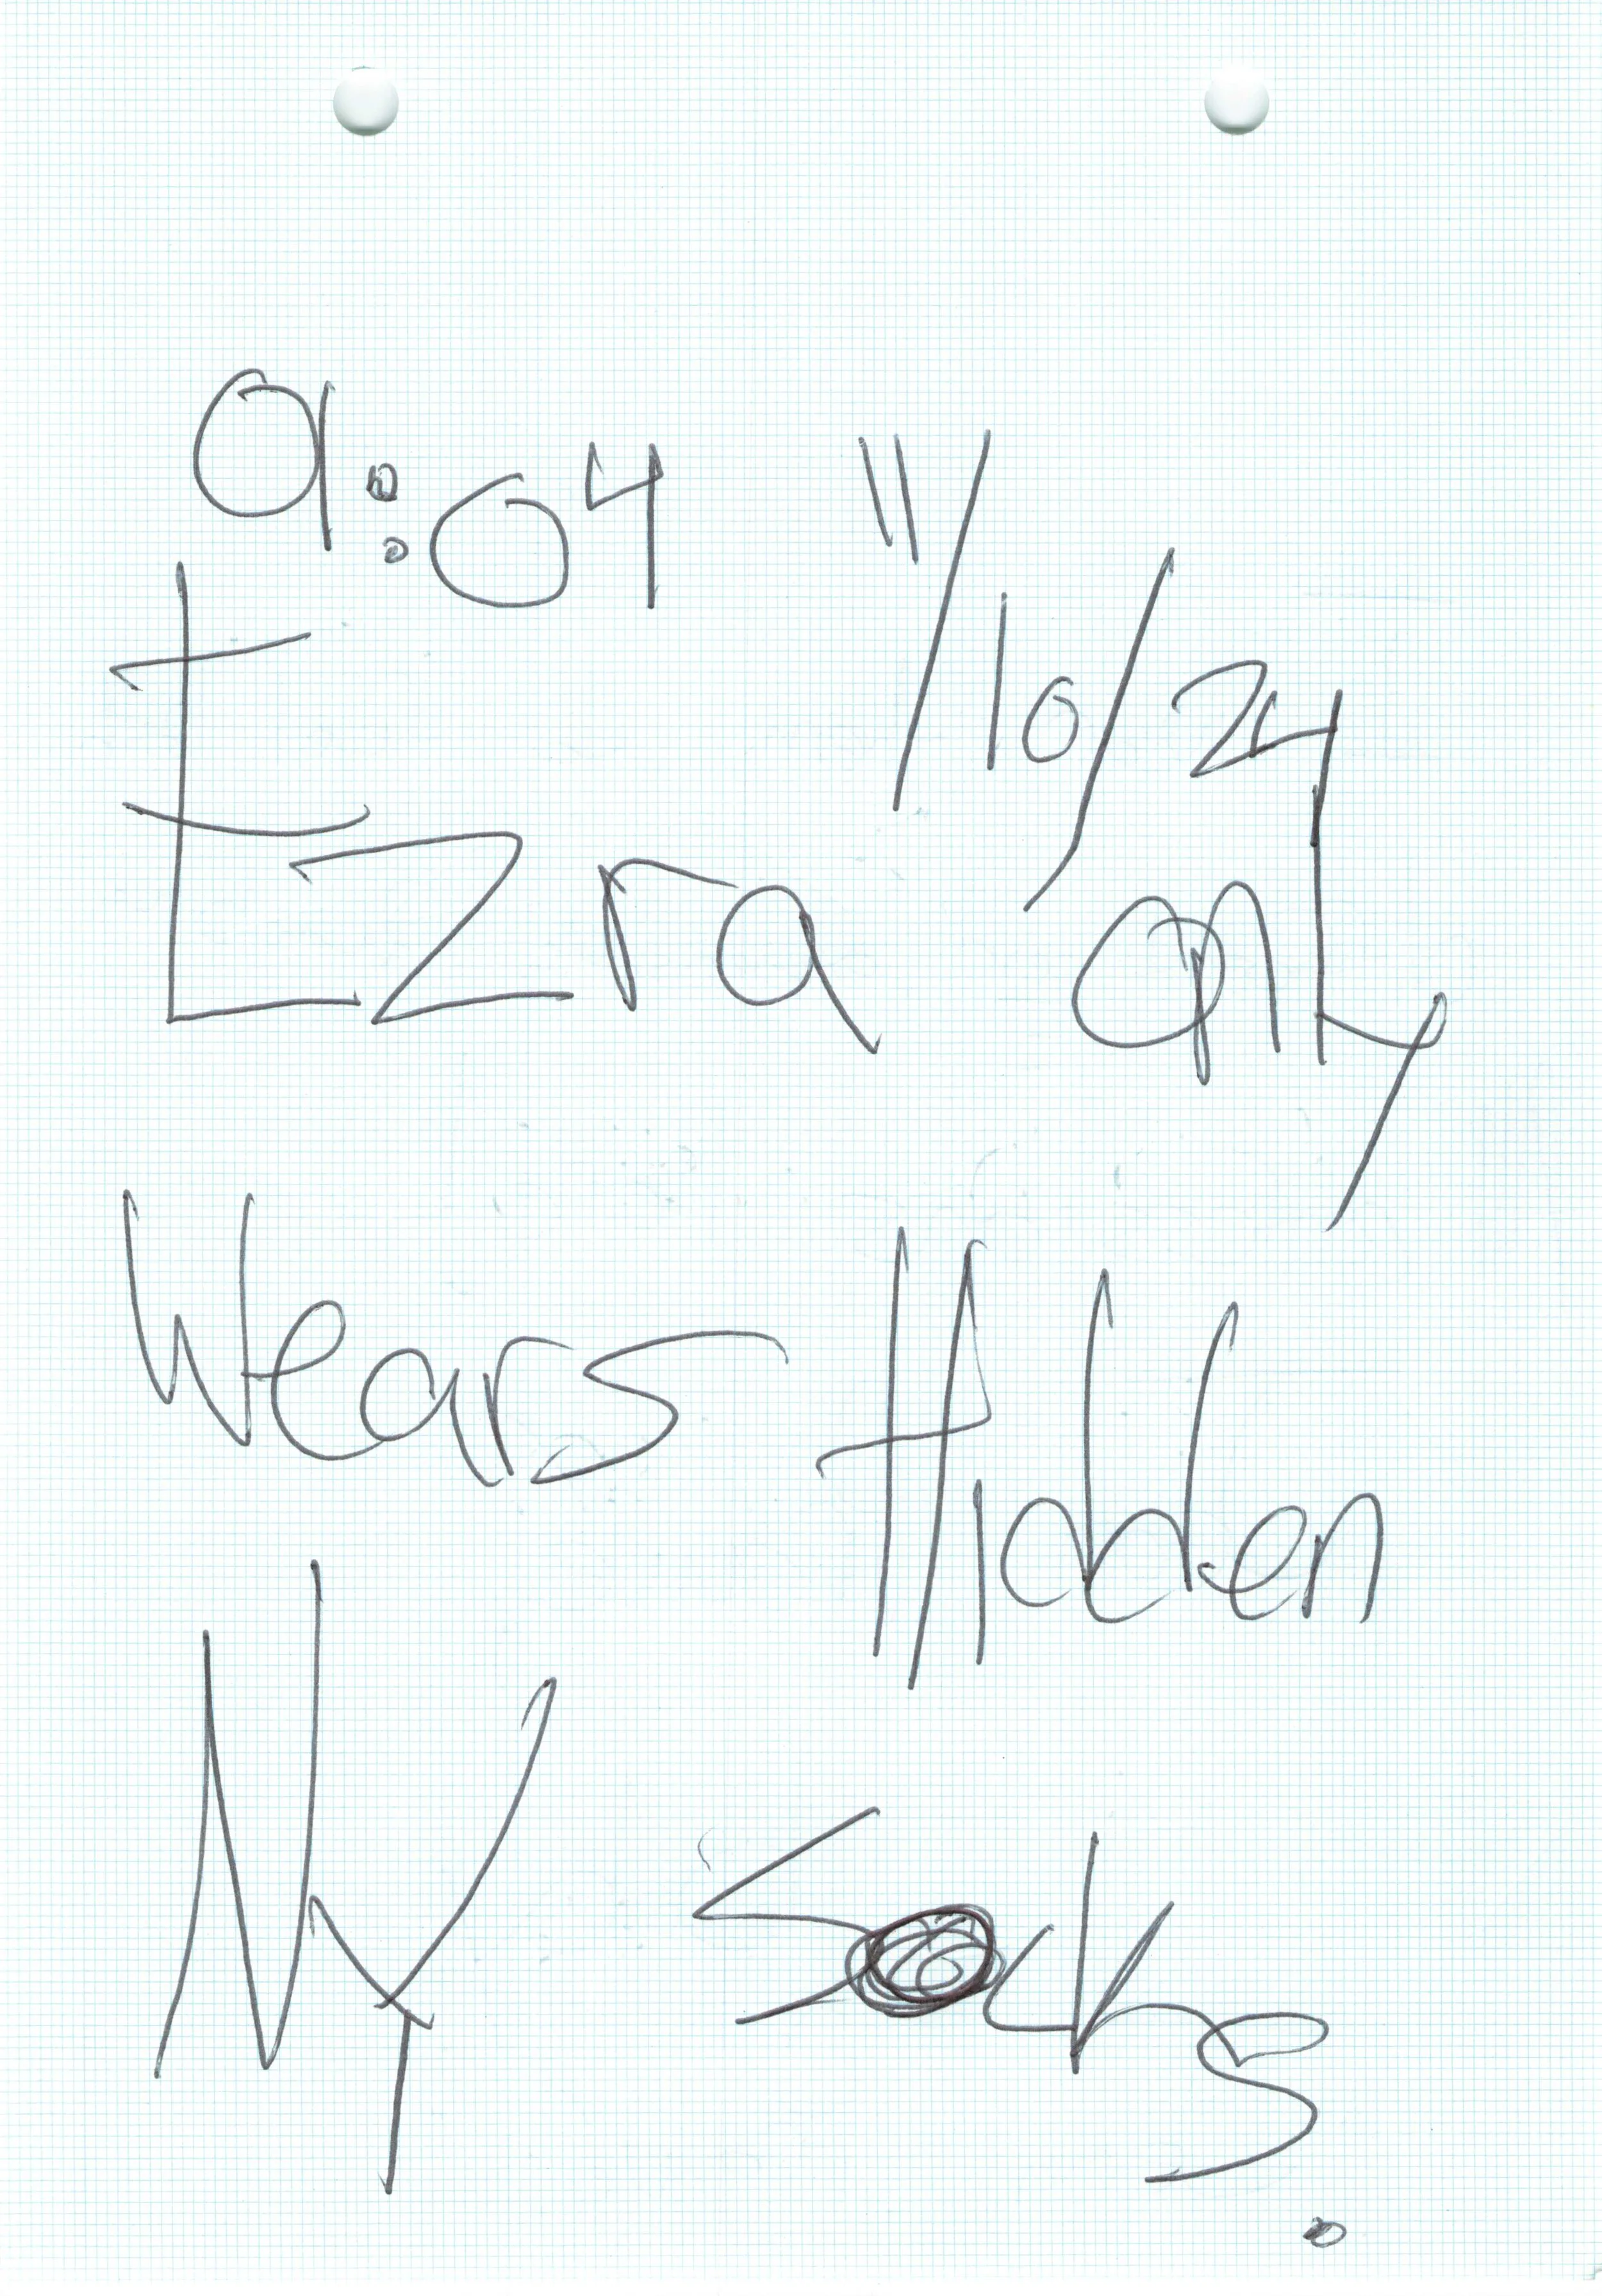 9:04 11/10/24
Ezra only
Wears Hidden
My Socks.